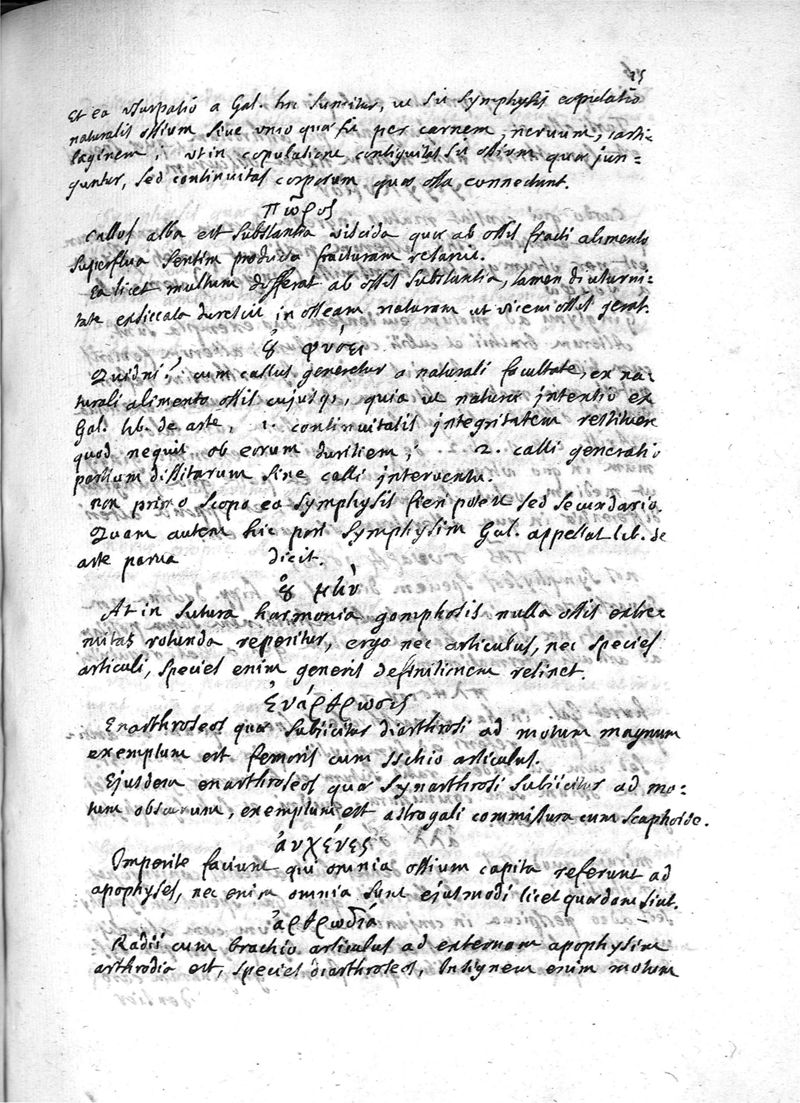 Et ea usurpatio a Gal. hic sumitur, ut sit symphysis copulatio
naturalis ossium sive unio quæ fit per carnem, nervum, carti-
laginem; ut in copulatione contiguitas sit ossium quæ jun=
guntur, sed continuitas corporum quæ ossa connectunt.
πῶρος
Callus alba est substantia viscida quæ ab ossis fracti alimento
superflua sensim producta fracturam
Ea licet multum differat ab ossis substantia, tamen diuturni-
tate exsiccata durescit in osseam naturam ut vicem ossis gerat.
ȣ̓ φύσει
Quidni? cum callus generetur a naturali facultate, ex na-
turali alimento ossis cujusq;, quia ut naturæ intentio ex
Gal. lib. de arte, 1. continuitatis integritatem restituere
quod nequit ob eorum duritiem; 2. 2. calli generatio
partium dissitarum sine calli interventu.
non primo scopo ea symphysis fieri potest sed secundario.
Quam autem hic post symphysim Gal. appellat lib. de
arte parva dicit.
ȣ̓ μὴν
At in sutura harmonia gomphosis nulla ossis extre-
mitas rotunda reperitur, ergo nec articulus, nec species
articuli, species enim generis definitionem retinet.
ἐνάρθρωσις
Enarthroseos quæ subiicitur diarthrosi ad motum magnum
exemplum est femoris cum Ischio articulus.
Ejusdem enarthroseos quæ synarthrosi subiicitur ad mo=
tum obscurum, exemplum est astragali commissura cum scaphoide.
αὐχένες
Imperite faciunt qui omnia ossium capita referunt ad
apophyses, nec enim omnia sunt ejusmodi licet quædam sint.
ἀρθρωδία
Radii cum brachio articulus ad externam apophysim
arthrodia est, species diarthroseos, Insignem enim motum